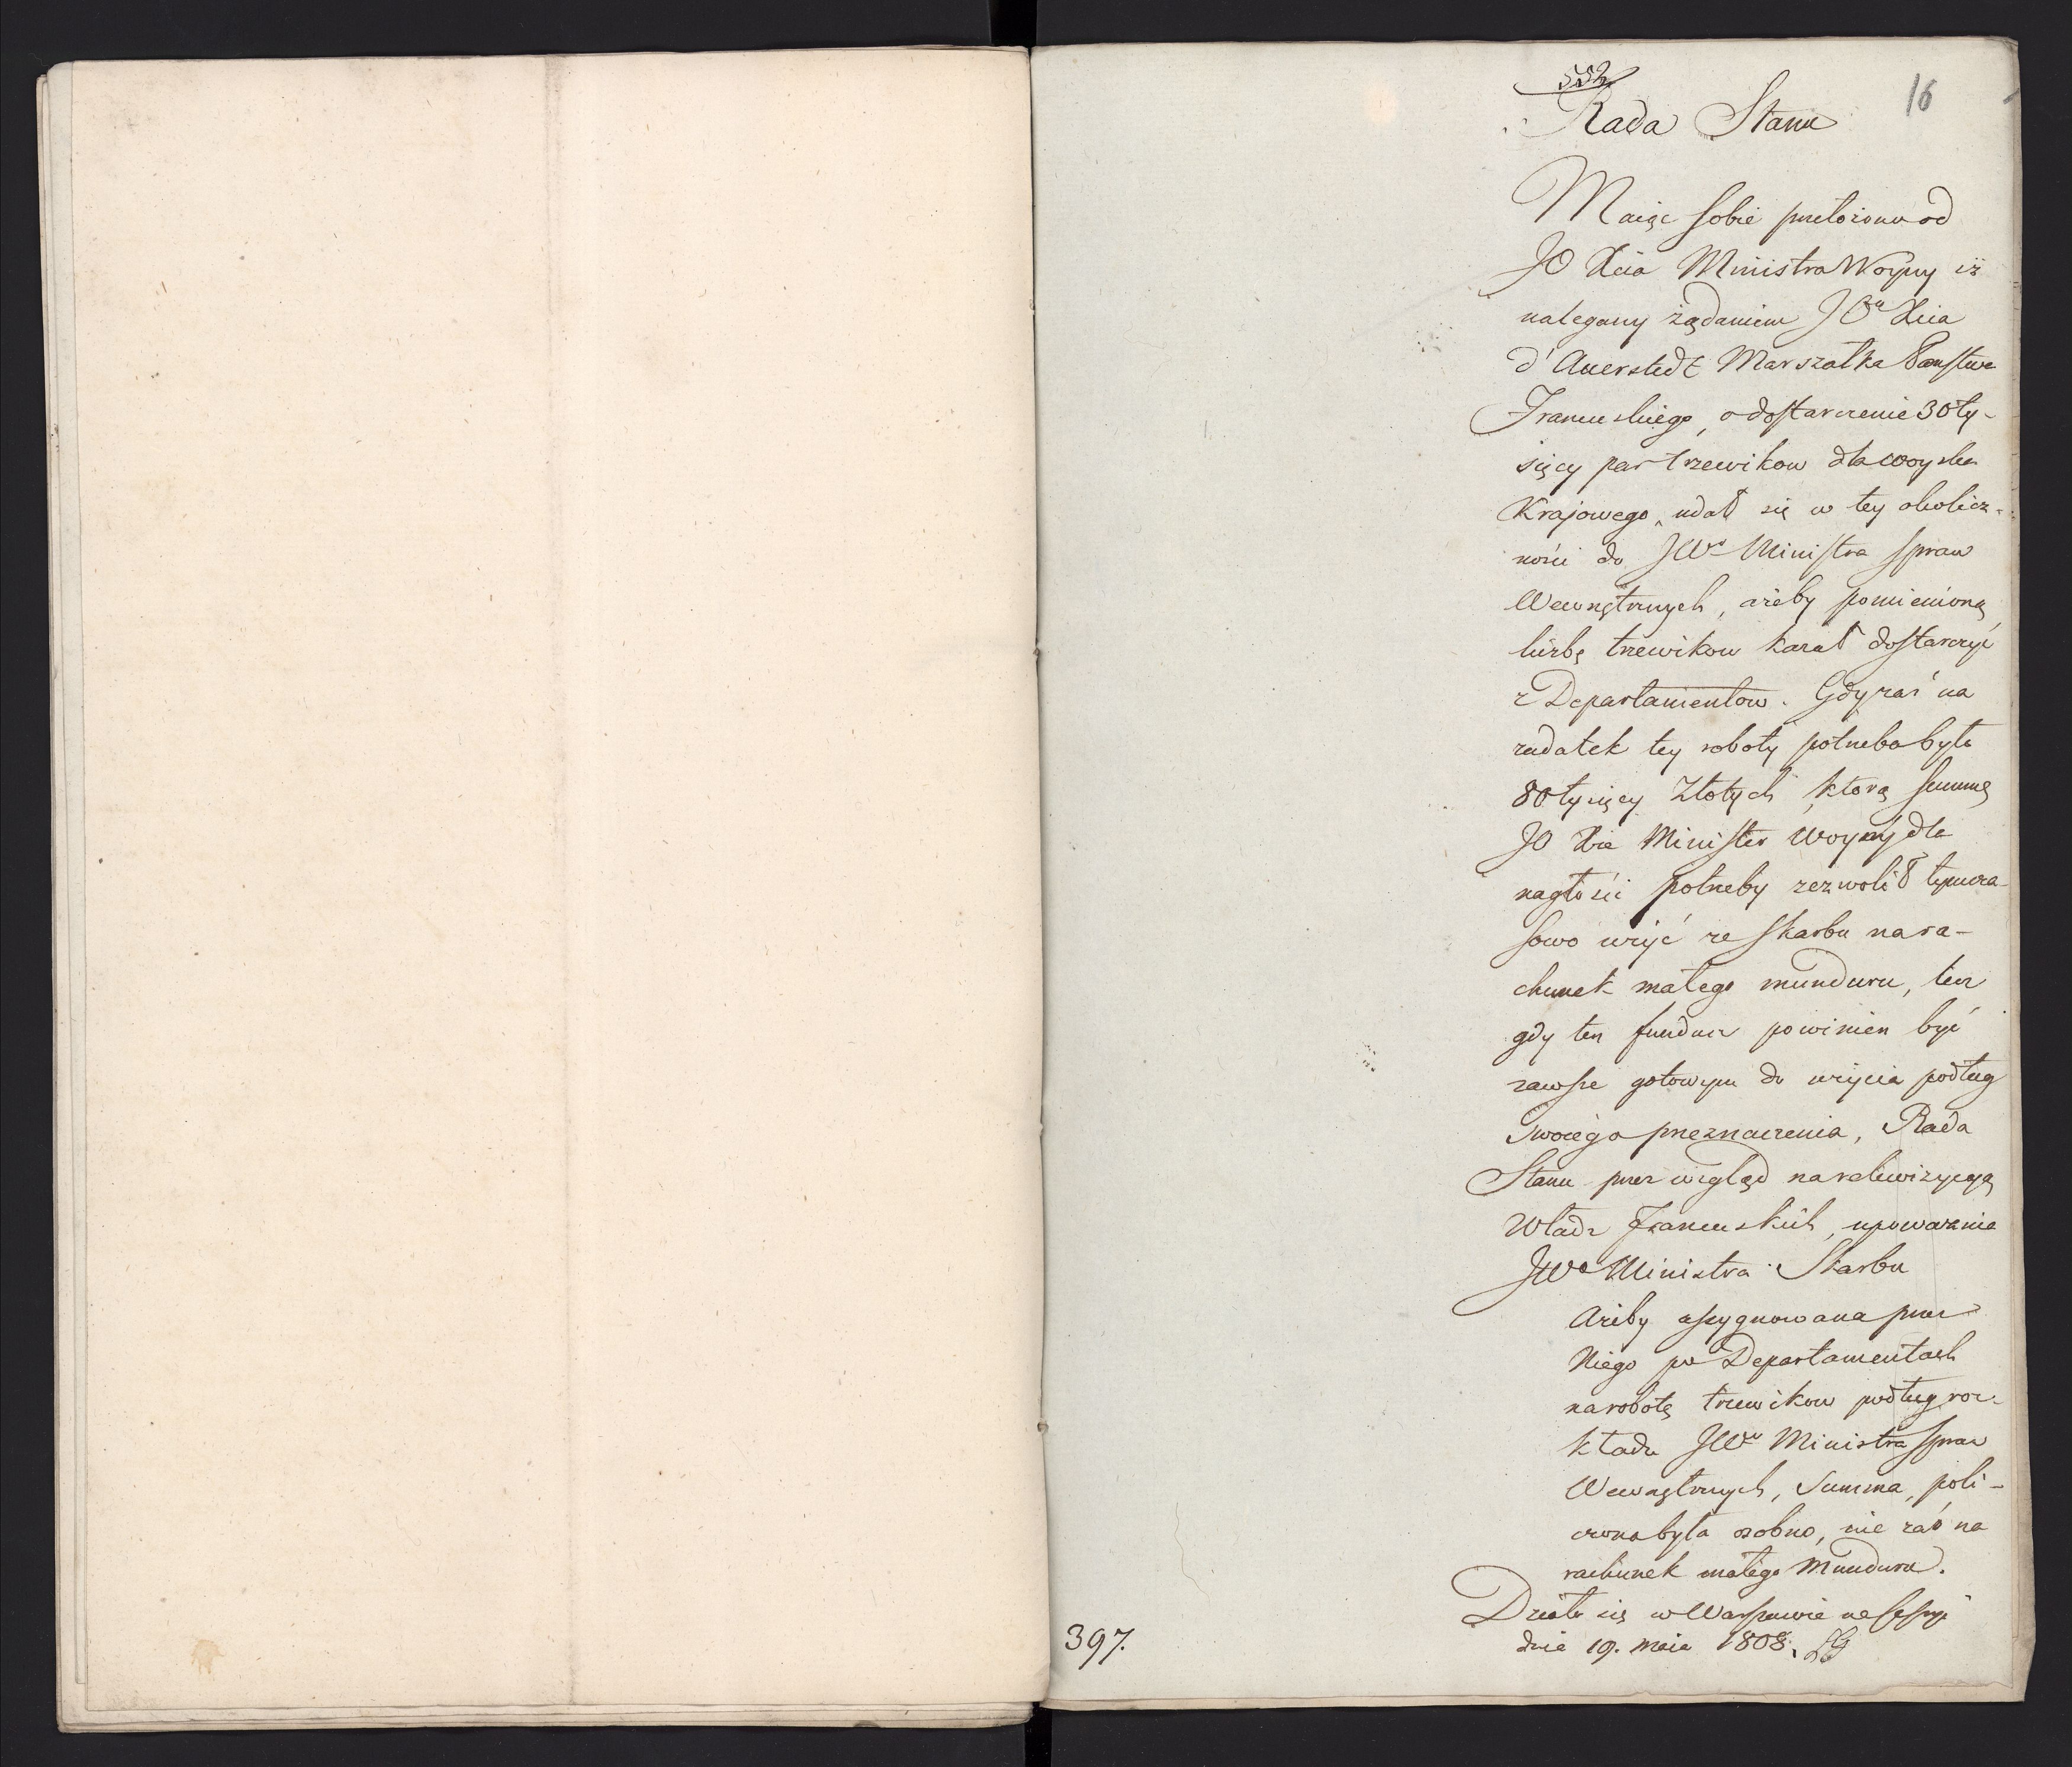 16
Rada Stanu
Maiąc sobie przełożono od
JO Xcia Ministra Woyny iż
nalegany żądaniem JOo Xcia
d'Auerstedt Marszałka Państwa
Francuskiego, o dostarczenie 30 ty-
sięcy par trzewikow dla woyska
Krajowego, udał się w tey okolicz-
ności do JWo Ministra spraw
Wewnętrznych, ażeby pomienioną
liczbę trzewikow kazał dostarczyć
z Departamentow. Gdy zaś na
zadatek tey roboty potrzeba było
80 tysięcy Złotych, ktorą summę
JO Xże Minister Woyny dla
nagłości potrzeby zezwolił tymcza-
sowo użyć ze skarbu na ra-
chunek małego munduru, lecz
gdy ten fundusz powinien być
zawsze gotowym do użycia podług
swoiego przeznaczenia, Rada
Stanu przez wzgląd na rekwizycyą
Władz Francuskich, upoważnia
JWo Ministra Skarbu
Ażeby assygnowana przez
Niego po Departamentach
na robotę trzewikow podług roz-
kładu JWo Ministra spraw
Wewnętrznych, Summa, poli-
czona była osobno, nie zaś na
rachunek małego Munduru.
Działo się w Warszawie na sessyi
dnia 19. maia 1808.
397.